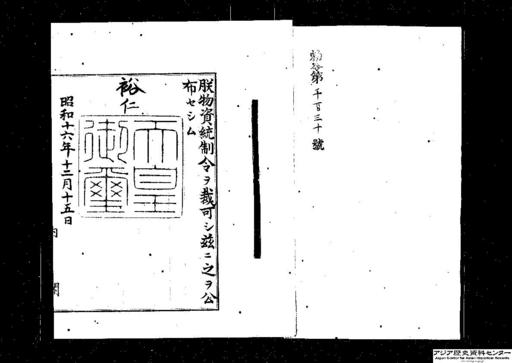 勅令第千百三十號
朕物資統制令ヲ裁可シ茲ニ之ヲ公
布セシム
裕仁
天皇
御璽
昭和十六年十二月十五日
内
閣
アジア歴史資料センター
Japan Center for Asian Historical Records